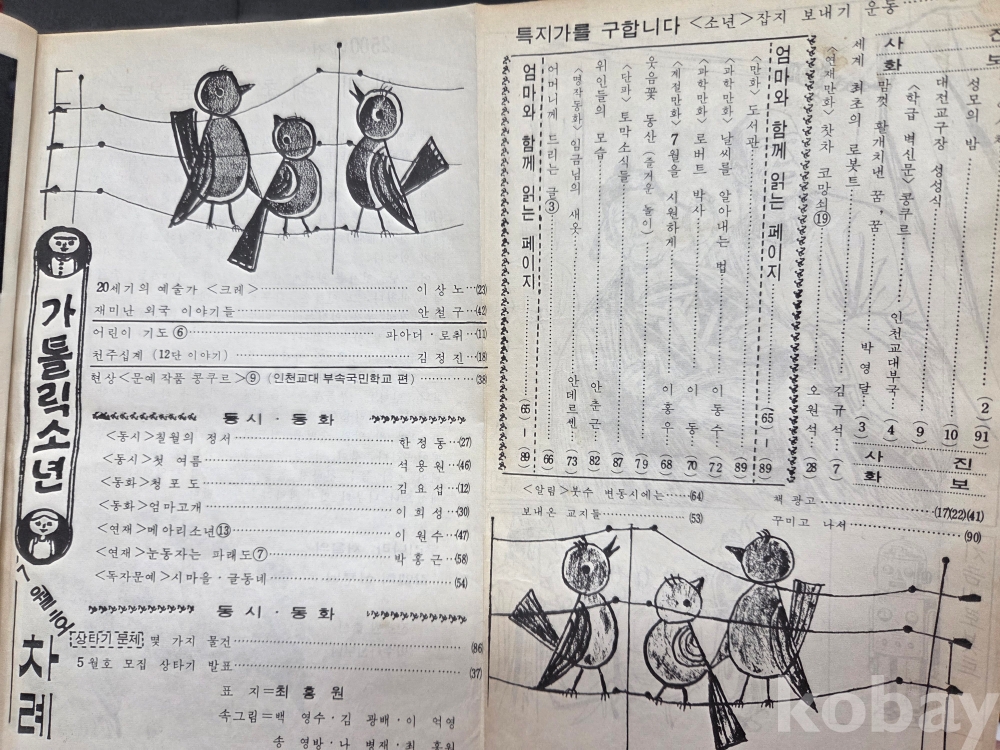 가톨릭소년
차례
20세기의 예술가 <크레> 이상노 (23)
재미난 외국 이야기들 안철구 (42)
어린이 기도 ⑥ 파아더·로취 (11)
천주십계 (12단 이야기) 김정진 (18)
현상<문예 작품 콩쿠르>⑨ (인천교대 부속국민학교 편) (38)
동시·동화
<동시>칠월의 정서 한정동 (27)
<동시>첫 여름 석용원 (46)
<동화>청포도 김요섭 (12)
<동화>엄마고개 이희성 (30)
<연재>메아리소년⑬ 이원수 (47)
<연재>눈동자는 파래도⑦ 박홍근 (58)
<독자문예>시마을·글동네 (54)
동시·동화
상타기 문제 몇 가지 물건 (86)
5월호 모집 상타기 발표 (37)
표지=최홍원
속그림=백영수·김광배·이억영
송영방·나병재·최홍원
특지가를 구합니다 <소년>잡지 보내기 운동
사진
화보
성모의 밤 (2)
(91)
대전교구장 성성식 (10)
<학급 벽신문>콩쿠르 인천교대부국 (9)
맘껏 활개치낸 꿈, 꿈 (4)
세계 최초의 로봇트 박영달 (3)
사진
화보
<연재만화>찻차 코망쇠⑲ 오원석 (28)
김규석 (7)
엄마와 함께 읽는 페이지 (65)—(89)
<만화>도서관 (89)
<과학만화>날씨를 알아내는 법 이동수 (72)
<과학만화>로버트 박사 이동 (70)
<계절만화>7월을 시원하게 이홍우 (68)
웃음꽃 동산 (즐거운 놀이) (79)
<단파>토막소식들 (87)
위인들의 모습 안춘근 (82)
<명작동화>임금님의 새옷 안데르센 (73)
어머니께 드리는 글③ (66)
엄마와 함께 읽는 페이지 (65)—(89)
<알림>붓수 변동시에는 (64)
보내온 교지들 (53)
책 광고 (17)(22)(41)
꾸미고 나서 (90)
kobay